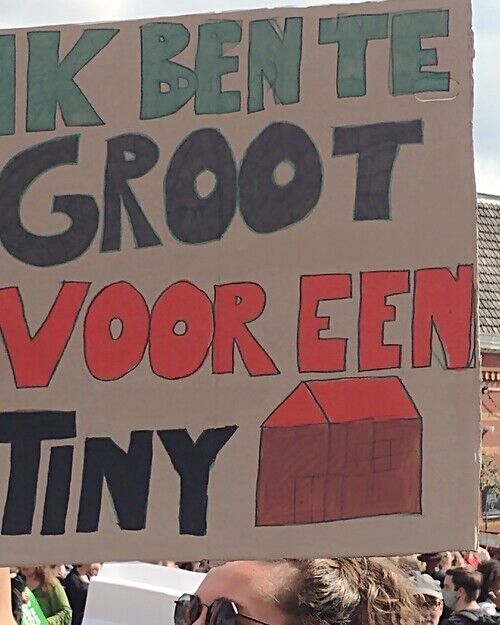 IK BEN TE
GROOT
VOOR EEN
TiNY